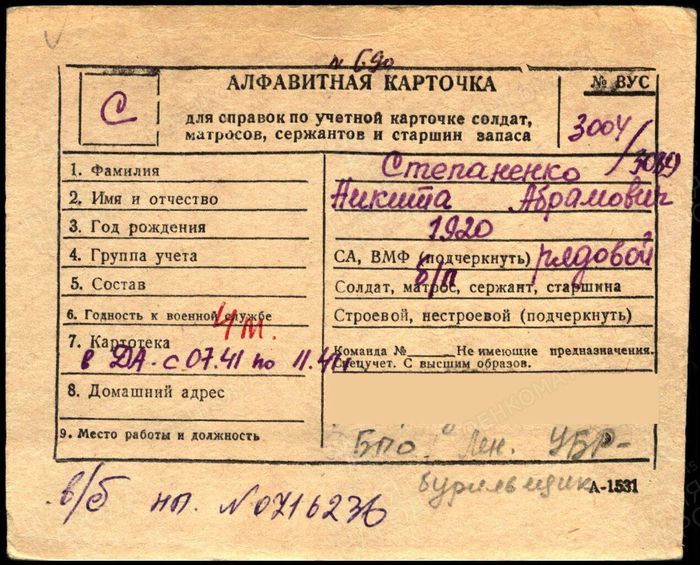 № 690
АЛФАВИТНАЯ КАРТОЧКА
№ ВУС
С
для справок по учетной карточке солдат,
матросов, сержантов и старшин запаса
3004/3069
1. Фамилия
Степаненко
2. Имя и отчество
Никита Абрамович
3. Год рождения
1920
4. Группа учета
СА, ВМФ (подчеркнуть) рядовой
5. Состав
б/п
Солдат, матрос, сержант, старшина
6. Годность к военной службе
Строевой, нестроевой (подчеркнуть)
7. Картотека
ЧМ.
в ДА. с 07.41 по 11.41г.
Команда № Не имеющие предназначения.
Спецучет. С высшим образов.
8. Домашний адрес
9. Место работы и должность
БПО Лен. УБР-
бурильщик
А-1531
в/б нп. №0716236